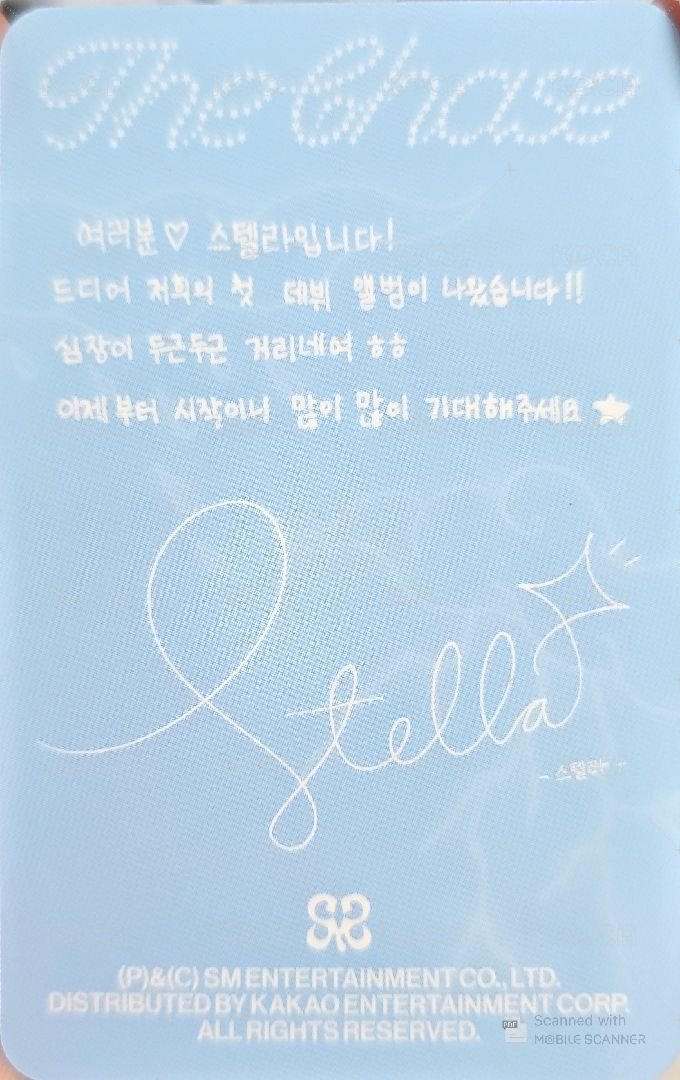 The Chase
여러분♡ 스텔라입니다!
드디어 저희의 첫 데뷔 앨범이 나왔습니다!!
심장이 두근두근 거리네여 ㅎㅎ
이제부터 시작이니 많이 많이 기대해주세요 ★
Stella
- 스텔라 -
(P)&(C) SM ENTERTAINMENT CO., LTD.
DISTRIBUTED BY KAKAO ENTERTAINMENT CORP.
ALL RIGHTS RESERVED.
PDF Scanned with
MOBILE SCANNER